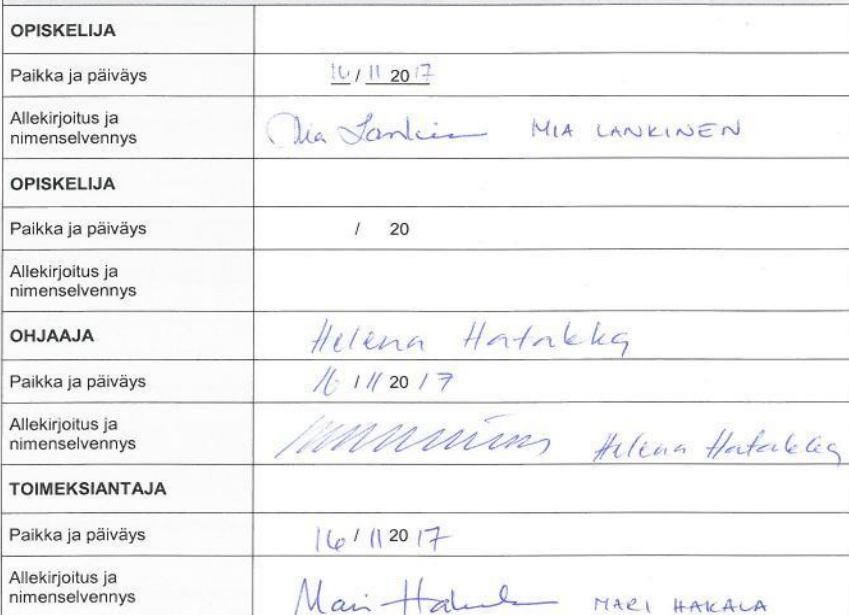 OPISKELIJA
Paikka ja päiväys 16 / 11 20 17
Allekirjoitus ja
nimenselvennys Mia Lankinen MIA LANKINEN
OPISKELIJA
Paikka ja päiväys / 20
Allekirjoitus ja
nimenselvennys
OHJAAJA Helena Hatakka
Paikka ja päiväys 16 / 11 20 17
Allekirjoitus ja
nimenselvennys Helena Hatakka
TOIMEKSIANTAJA
Paikka ja päiväys 16 / 11 20 17
Allekirjoitus ja
nimenselvennys Mari Hakala MARI HAKALA